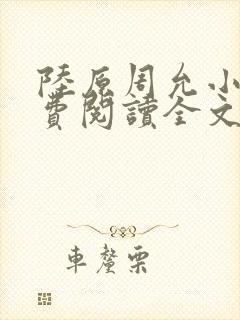 陸原周允小
費閱讀全文
車釐栗